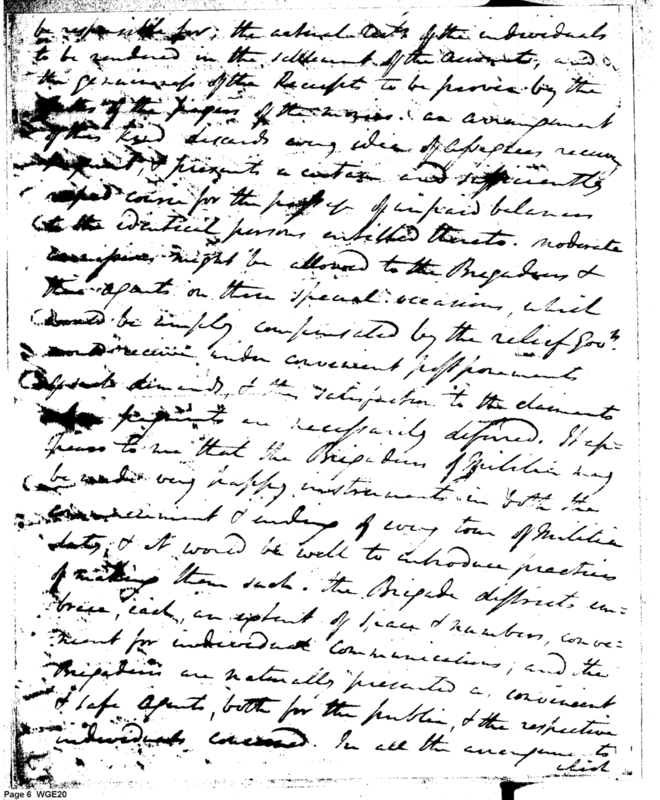 be responsible for; the actual debts of the individuals
to be rendered in the settlement of the accounts, and
the genuineness of the Receipts to be proven by the
of the of the monies. an arrangement
of this kind discards every idea of assignees receiving
payment, & presents a certain and sufficiently
course for the passage of unpaid balances
to the identical persons entitled thereto. moderate
might be allowed to the Brigadiers &
their agents on these special occasions, which
would be amply compensated by the relief Govt.
would receive under convenient postponements
of such demands, & the satisfaction to the claimants
payments are necessarily deferred. It ap=
pears to me that the Brigadiers of Militia may
be made very happy instruments in both the
commencement & ending of every tour of Militia
duty, & it would be well to introduce practices
of making them such. the Brigade districts em=
brace, each, an extent of space & numbers, conve=
nient for individual communications; and the
Brigadiers are naturally presented as convenient
& safe Agents, both for the public, & the respective
individuals concerned. In all the arrangements to
which
Page 6 WGE20